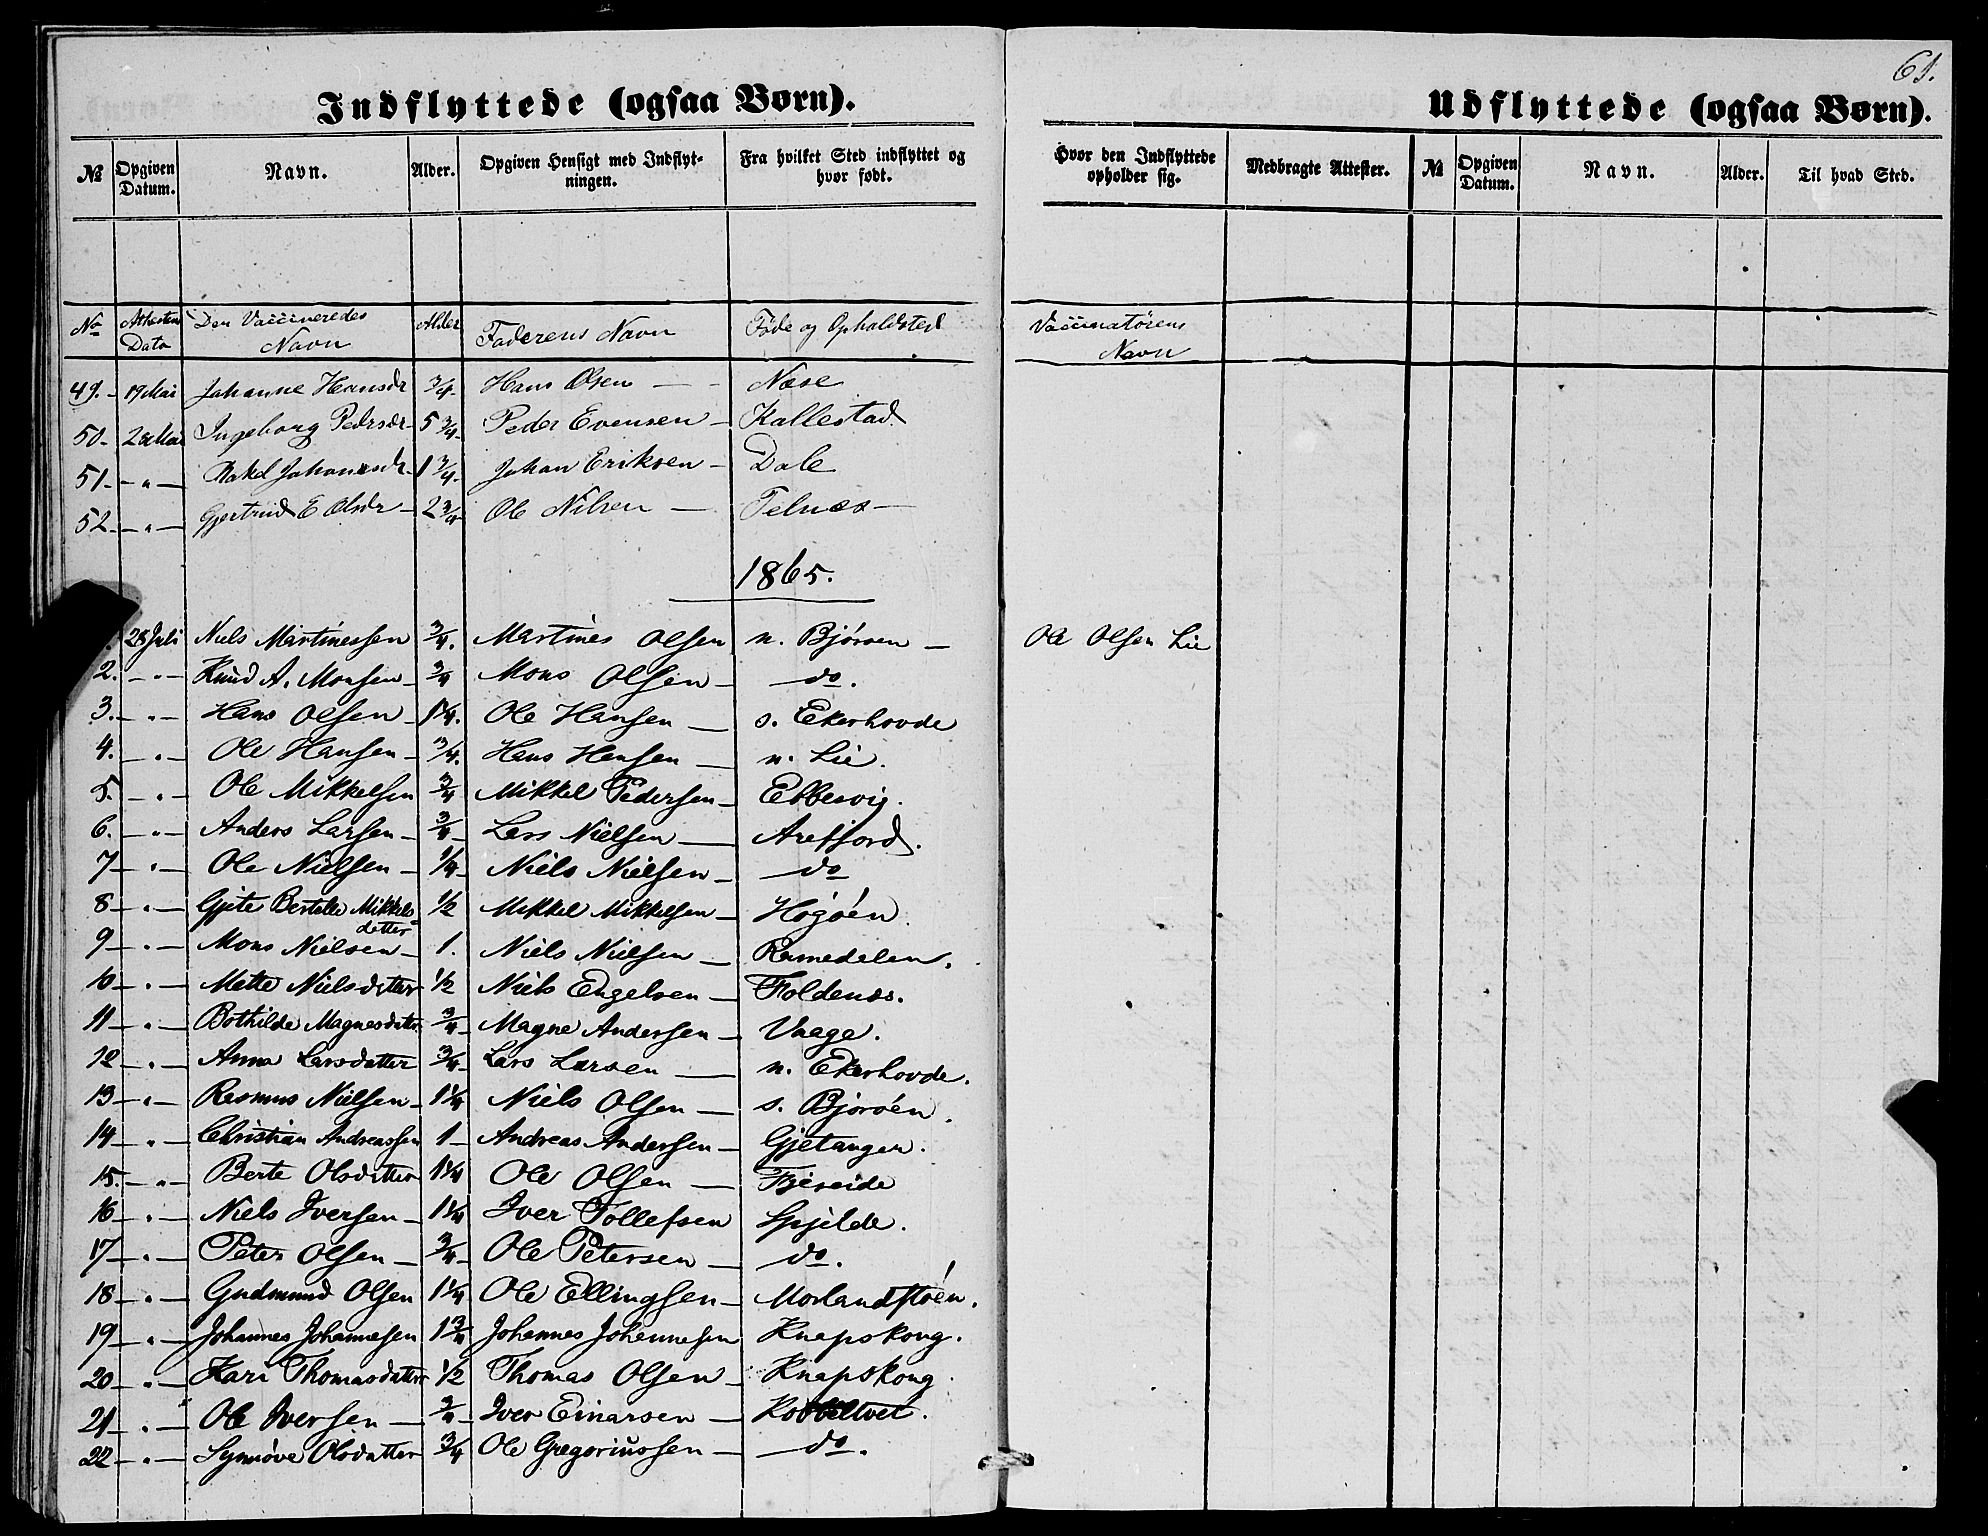 61.
Indflyttede (ogsaa Børn).
Udflyttede (ogsaa Børn).
№ Opgiven Datum. Navn. Alder. Opgiven Hensigt med Indflytningen. Fra hvilket Sted indflyttet og hvor født. Hvor den Indflyttede opholder sig. Medbragte Attester. № Opgiven Datum. Navn. Alder. Til hvad Sted.
No Athestens Dato Den Vaccineredes Navn Alder Faderens Navn Føde og Opholdsted Vaccinatörens Navn
49. - 19 Mai Johanne Hansdr 3/4 - Hans Olsen — Nese
50 - 28 Mai Ingeborg Pedrsdr - 5 3/4 - Peder Evensen - Kallestad
51 - - " - Rakel Johansdr - 1 3/4 - Johan Eriksen - Dale
52 - - " - Gjertrud E Olsdr - 2 3/4 Ole Nilsen - Telnæs -
1865.
28 Juli Niels Martinessen 3/4. Martines Olsen n. Björoen - Ole Olsen Lie
2. - " - Knud A. Monsen - 3/4 Mons Olsen - do.
3. - " - Hans Olsen - 1 1/4. Ole Hansen - s. Ekerhovde
4. - " - Ole Hansen - 3/4. Hans Hansen - n. Lie.
5. - " - Ole Mikkelsen 3/4 Mikkel Pedersen - Ebbesvig.
6. - " - Anders Larsen - 3/4 - Lars Nielsen - Arefjord.
7 - " - Ole Nielsen - 1/4 - Niels Nielsen - do
8 - " - Gjite Bertelle Mikkels- 1/2 Mikkel Mikkelsen - Högöen.
datter
9 - " - Mons Nielsen - 1. Niels Nielsen - Ramedalen.
10 - " - Mette Nielsdatter 1/2 Niels Engelsen - Foldenes.
11 - " - Bothilde Magnesdatter 3/4 - Magne Andersen - Vaage.
12 - " - Anna Larsdatter 3/4 - Lars Larsen - n. Ekerhovde.
13 - " - Rasmus Nielsen - 1 1/4 Niels Olsen - s. Bjoröen.
14 - " - Christian Andreassen 1 - Andreas Andersen - Gjetanger.
15. - " - Berte Olsdatter 1 1/4 Ole Olsen - Fjereide
16 - " - Niels Iversen - 1 1/4 Iver Tollefsen Spjelde.
17 - " - Peter Olsen - 3/4 - Ole Petersen - do.
18 - " - Gudmund Olsen 1 1/4 Ole Ellingsen - Morlandstöen.
19 - " - Johannes Johannesen 1 3/4 Johannes Johannesen Knapskong.
20 - " - Kari Thomasdatter 1/2 Thomas Olsen - Knapskong.
21 - " - Ole Iversen - 3/4 - Iver Einarsen - Kobbeltvet.
22 - " - Synnöve Olsdatter 3/4 Ole Gregoriussen - do.